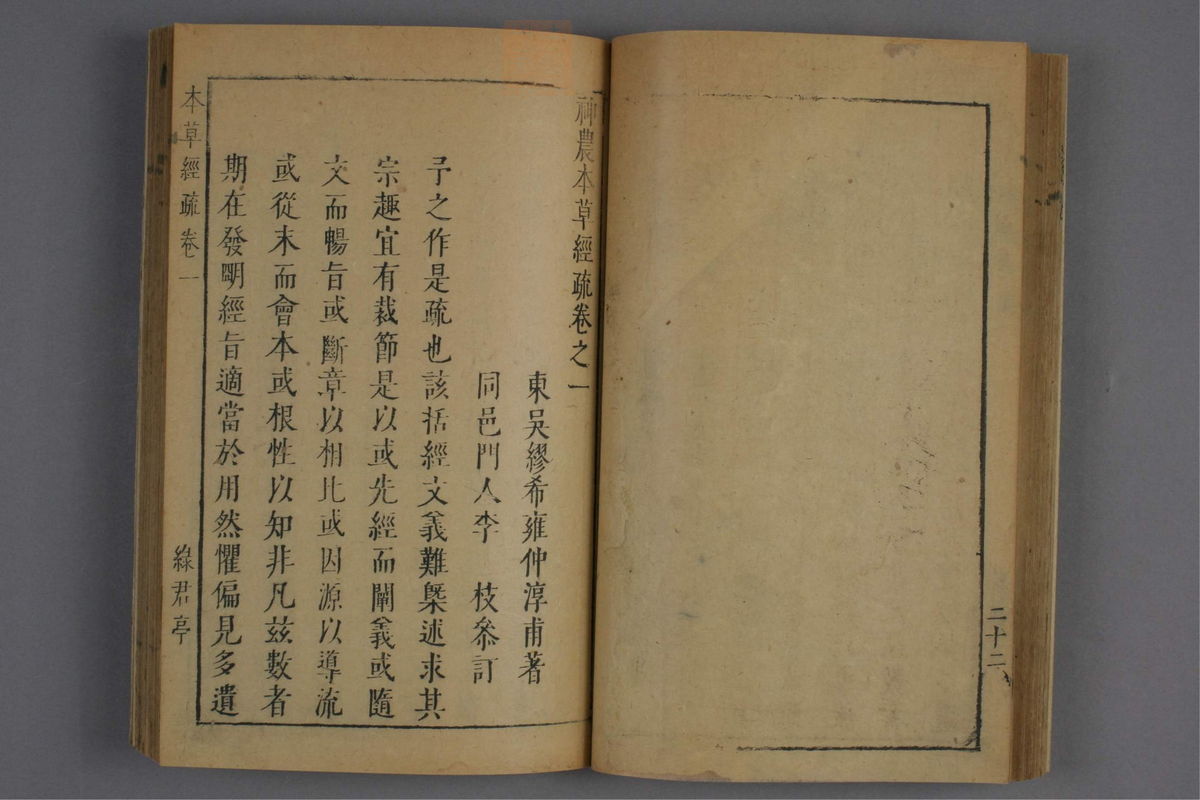 二十二
神農本草經疏卷之一
東吳繆希雍仲淳甫著
同邑門人李 枝叅訂
予之作是疏也該括經文義難槩述求其
宗趣宜有裁節是以或先經而闡義或隨
文而暢旨或斷章以相比或因源以導流
或從末而會本或根性以知非凡茲數者
期在發明經旨適當於用然懼偏見多遺
本草經疏卷一
綠君亭